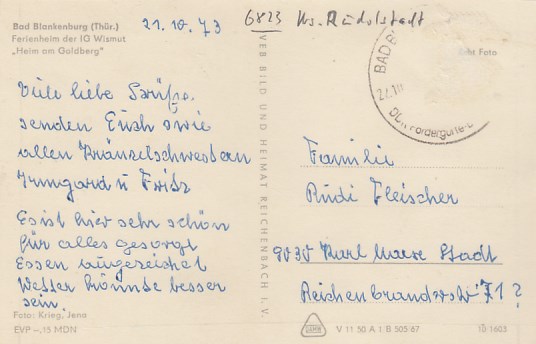 Bad Blankenburg (Thür.)
Ferienheim der IG Wismut
„Heim am Goldberg"
21.10.73
6823 Krs. Rudolstadt
Viele liebe Grüße
senden Euch sowie
allen Kränzelschwestern
Irmgard u Fritz
Es ist hier sehr schön
für alles gesorgt
Essen ausgezeichet
Wetter könnte besser
sein.
Foto: Krieg, Jena
EVP -,15 MDN
VEB BILD UND HEIMAT REICHENBACH I. V.
BAD B
Echt Foto
Familie
Rudi Fleischer
9030 Karl Marx Stadt
Reichenbranderstr 71?
V 11 50 A 1 B 505/67
10 1603